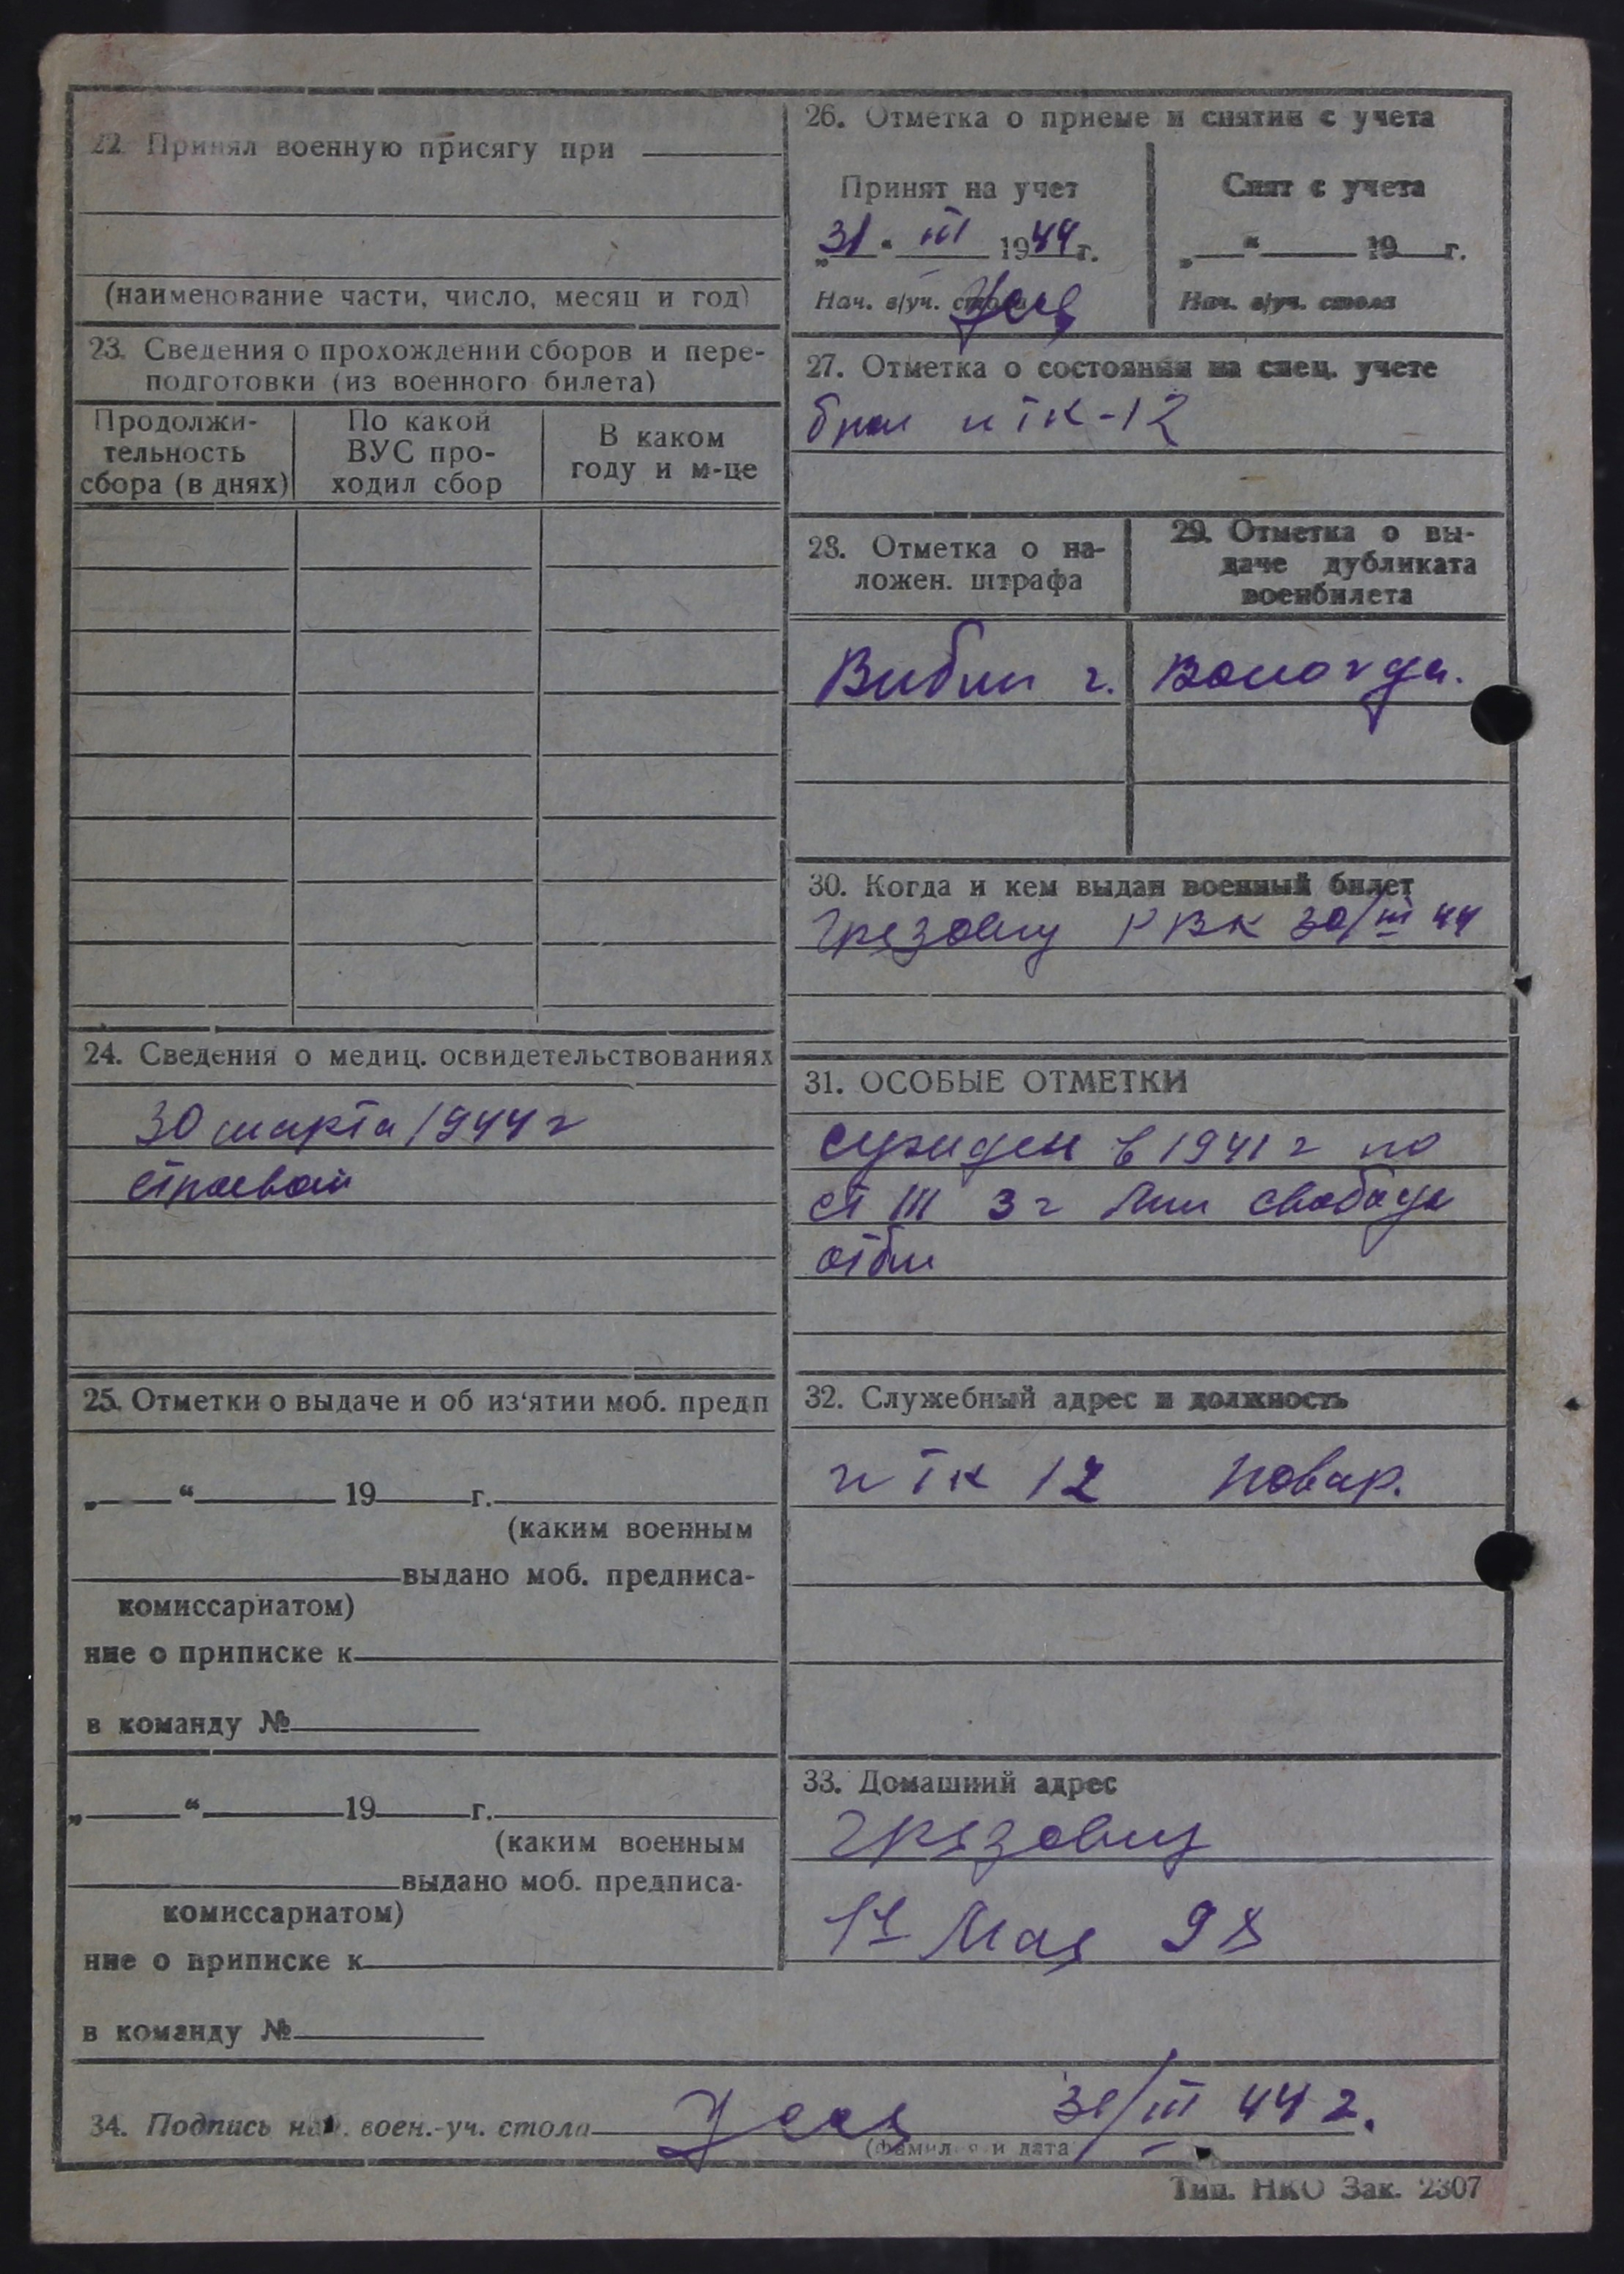 22. Принял военную присягу при
(наименование части, число, месяц и год)
23. Сведения о прохождении сборов и пере-
подготовки (из военного билета)
Продолжи-
тельность
сбора (в днях)
По какой
ВУС про-
ходил сбор
В каком
году и м-це
24. Сведения о медиц. освидетельствованиях
30 марта 1944 г
строевой
25. Отметки о выдаче и об из‘ятии моб. предп
„ “ 19 г.
(каким военным
выдано моб. предписа-
комиссариатом)
ние о приписке к
в команду №
„ “ 19 г.
(каким военным
выдано моб. предписа-
комиссариатом)
ние о приписке к
в команду №
26. Отметка о приеме и снятии с учета
Принят на учет
„31“ III 1944 г.
Нач. в/уч. стола
Снят с учета
„ “ 19 г.
Нач. в/уч. стола
27. Отметка о состоянии на спец. учете
итк-12
28. Отметка о на-
ложен. штрафа
29. Отметка о вы-
даче дубликата
военбилета
Выбыл г. Вологда.
30. Когда и кем выдан военный билет
Грязовец РВК 30/III 44
31. ОСОБЫЕ ОТМЕТКИ
Сужден в 1941 г по
ст III 3 г лиш свободы
отбыл
32. Служебный адрес и должность
итк 12 повар.
33. Домашний адрес
Грязовец
1е Мая 98
34. Подпись нач. воен.-уч. стола 31/III 44 г.
(фамилия и дата
Тип. НКО Зак. 2307